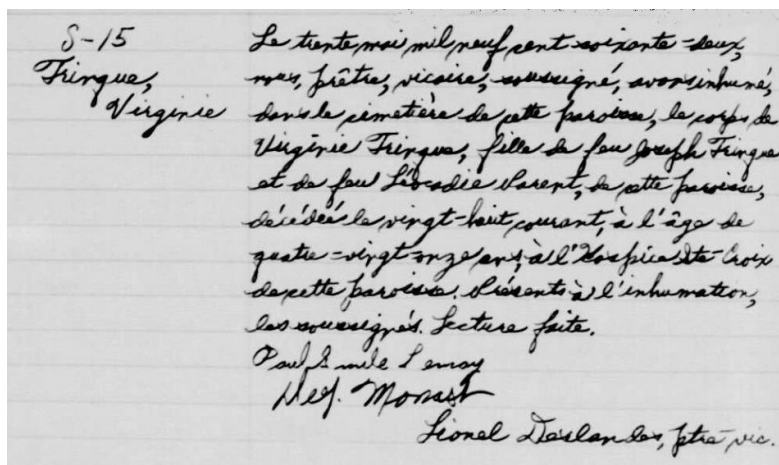 S-15
Fringue,
Virginie
Le trente mai mil neuf cent soixante-deux,
nous, prêtre, vicaire, soussigné, avons inhumé,
dans le cimetière de cette paroisse, le corps de
Virginie Fringue, fille de feu Joseph Fringue
et de feu Léocadie Parent, de cette paroisse,
décédée le vingt-huit courant, à l'âge de
quatre-vingt-onze ans, à l'Hospice Ste-Croix
de cette paroisse. Présents à l'inhumation,
les soussignés. Lecture faite.
Paul Emile Lemay
Monast
Lionel Deslandes, ptre vic.